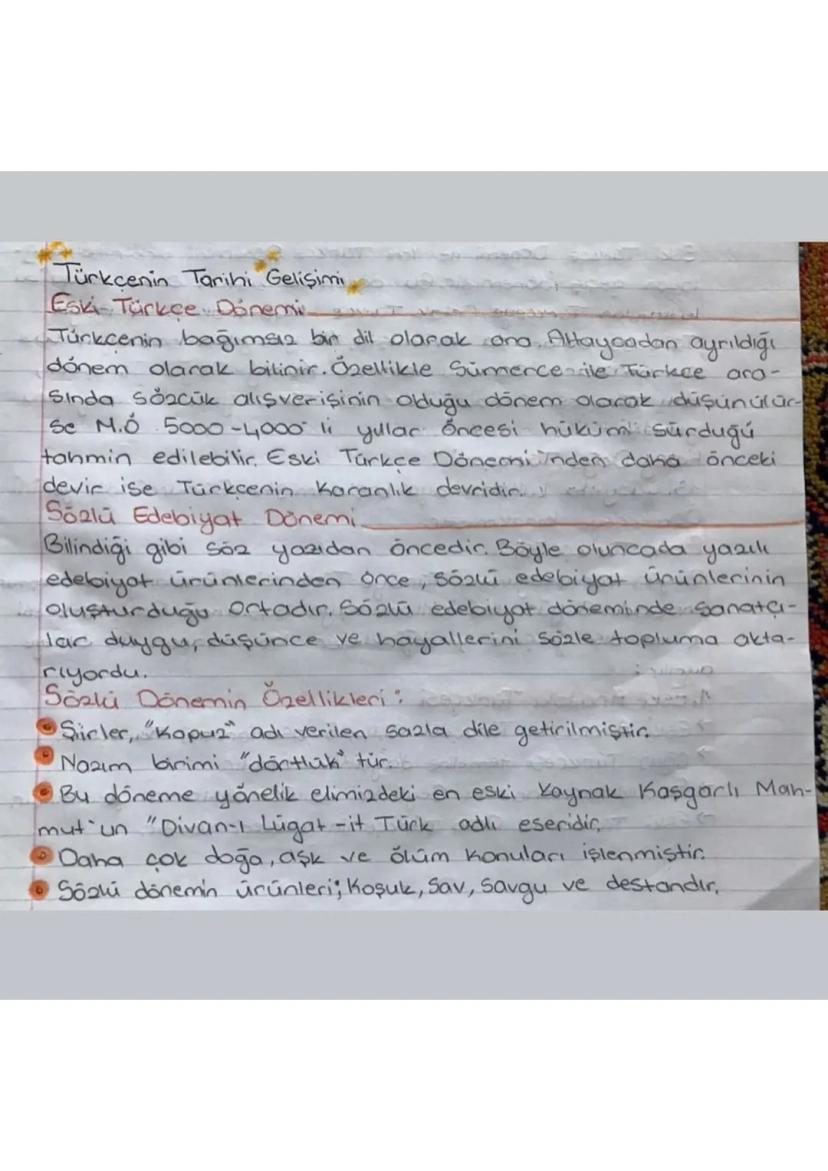 Türkçenin Tarihi Gelişimi
Eski Türkçe Dönemi
Türkçenin bağımsız bir dil olarak ana Altaycadan ayrıldığı
dönem olarak bilinir. Özellikle Sümerce ile Türkçe ara-
sında sözcük alışverişinin olduğu dönem olarak düşünülür-
se M.Ö 5000-4000 li yıllar öncesi hüküm sürduğü
tahmin edilebilir. Eski Türkçe Dönemi'nden daha önceki
devir ise Türkçenin Karanlık devridir.
Sözlü Edebiyat Dönemi
Bilindiği gibi söz yazıdan öncedir. Böyle oluncada yazılı
edebiyat ürünlerinden önce, sözlü edebiyat ürünlerinin
oluşturduğu ortadır. Sözlü edebiyat döneminde sanatçı-
lar duygu, düşünce ve hayallerini sözle topluma akta-
rıyordu.
Sözlü Dönemin Özellikleri:
Şiirler, "Kopuz" adı verilen sazla dile getirilmiştir.
Nazım birimi "dörtlük" tür.
Bu döneme yönelik elimizdeki en eski kaynak Kaşgarlı Mah-
mut'un "Divan-ı Lügat-it Türk adlı eseridir.
Daha çok doğa, aşk ve ölüm konuları işlenmiştir.
Sözlü dönemin ürünleri; Koşuk, Sav, Savgu ve destandır.